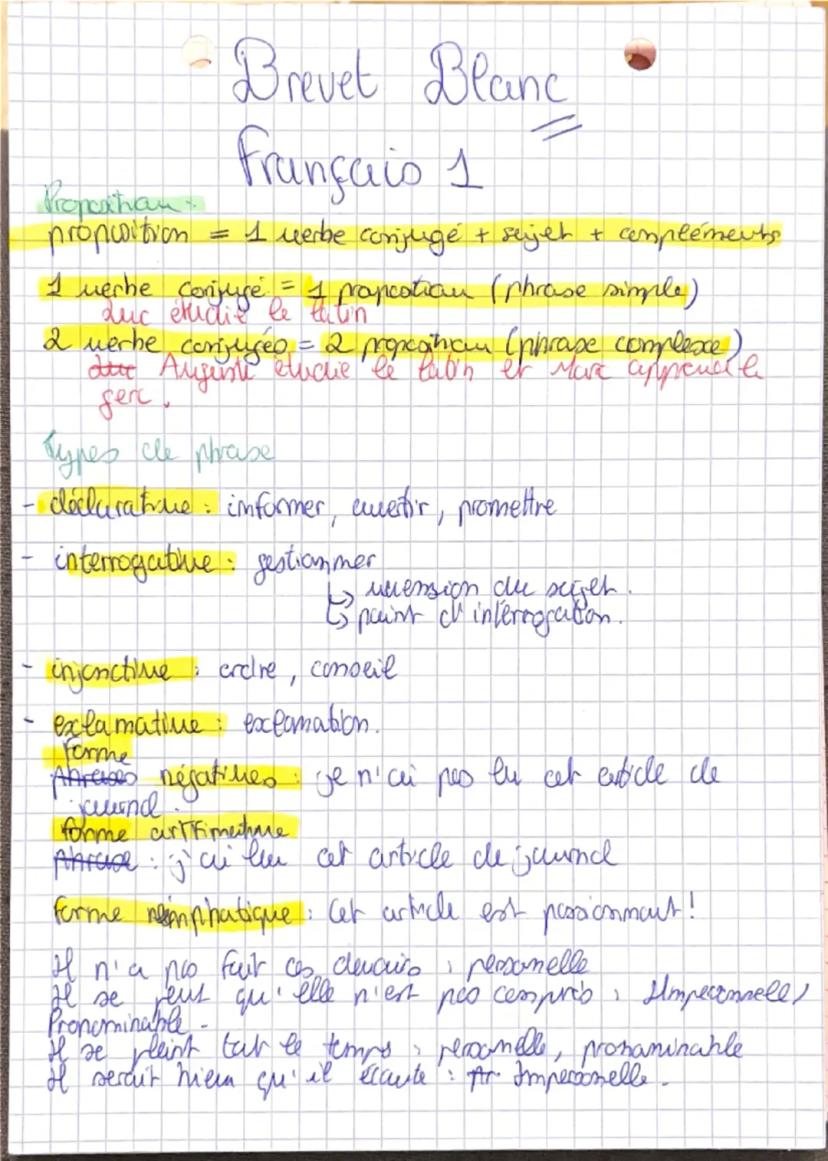 Brevet Blanc
Français 1
Proposition :
proposition = 1 verbe conjugé + sujet + compléments
1 verbe conjugé = 1 proposition (phrase simple)
Luc étudie le latin
2 verbe conjugés = 2 proposition (phrase complexe)
Augustin étudie le latin et Marc apprend le
grec.
Types de phrase
- déclarative : informer, avertir, promettre
- interrogative : qestionner
↳ inversion du sujet.
↳ point d'interrogation.
- injonctive : ordre, conseil
- exclamative : exclamation.
forme
Phrases négatives : je n'ai pas lu cet article de
journal.
forme affirmative
Phrase : j'ai lu cet article de journal
forme emphatique : Cet article est passionnant !
Il n'a pas fait ces devoirs : personelle
Il se peut qu'elle n'est pas compris : Impersonnelle,
Pronominable.
Il se plaint tout le temps : personnelle, pronominable
Il serait bien qu'il écoute : Impersonelle.